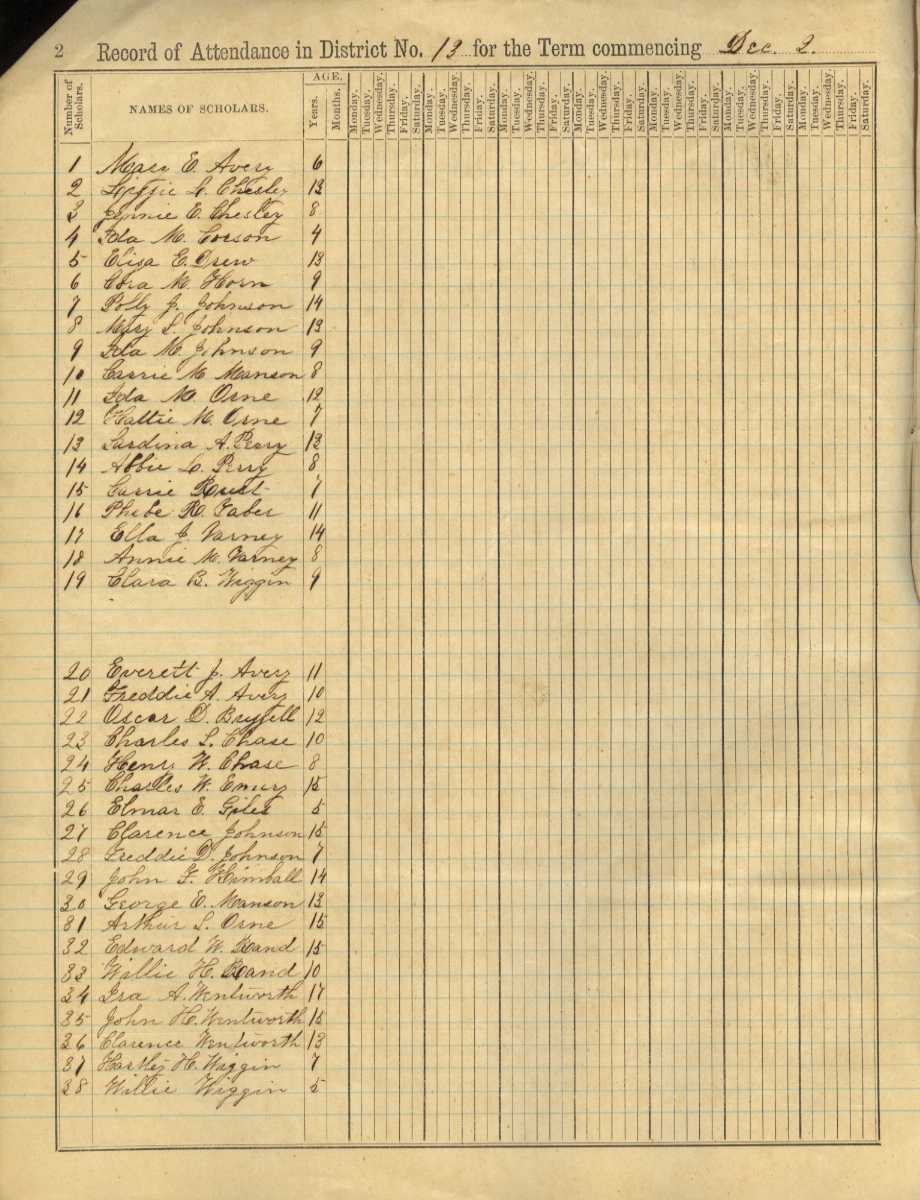 2 Record of Attendance in District No. 13 for the Term commencing Dec. 2.
Number of Scholars. NAMES OF SCHOLARS. AGE. Years. Months. Monday. Tuesday. Wednesday. Thursday. Friday. Saturday. Monday. Tuesday. Wednesday. Thursday. Friday. Saturday. Monday. Tuesday. Wednesday. Thursday. Friday. Saturday. Monday. Tuesday. Wednesday. Thursday. Friday. Saturday. Monday. Tuesday. Wednesday. Thursday. Friday. Saturday. Monday. Tuesday. Wednesday. Thursday. Friday. Saturday. Monday. Tuesday. Wednesday. Thursday. Friday Saturday.
1 E. Avery 6
2 Lizzie L. Chesley 13
3 Jennie E. Chesley 8
4 Ida M. Corson 4
5 Eliza E. Drew 13
6 Cora M. Horn 9
7 Polly J. Johnson 14
8 Mary S. Johnson 13
9 Ida M. Johnson 9
10 Carrie M Manson 8
11 Ida M. Orne 12
12 Hattie M. Orne 7
13 A. Perry 13
14 Abbie L. Perry 8
15 Carrie Rust 7
16 Phebe R. Taber 11
17 Ella J. Varney 14
18 Annie M. Varney 8
19 Clara B. Wiggin 9
20 Everett J. Avery 11
21 Freddie A. Avery 10
22 Oscar D. 12
23 Charles L. Chase 10
24 Henry W. Chase 8
25 Charles W. Emery 15
26 Elmar E. Giles 5
27 Clarence Johnson 15
28 Freddie D. Johnson 7
29 John F. Kimball 14
30 George E. Manson 13
31 Arthur L. Orne 15
32 Edward W. Rand 15
33 Willie H. Rand 10
34 Ira A. Wentworth 17
35 John H. Wentworth 15
36 Clarence Wentworth 13
37 Hartley H. Wiggin 7
38 Willie Wiggin 5